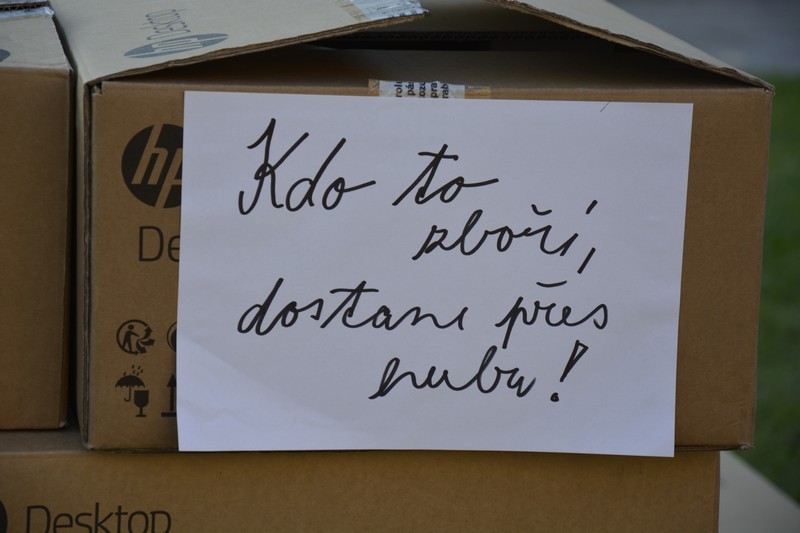 Desktop
hp
Kdo to
zboří,
dostane přes
hubu!
Desktop